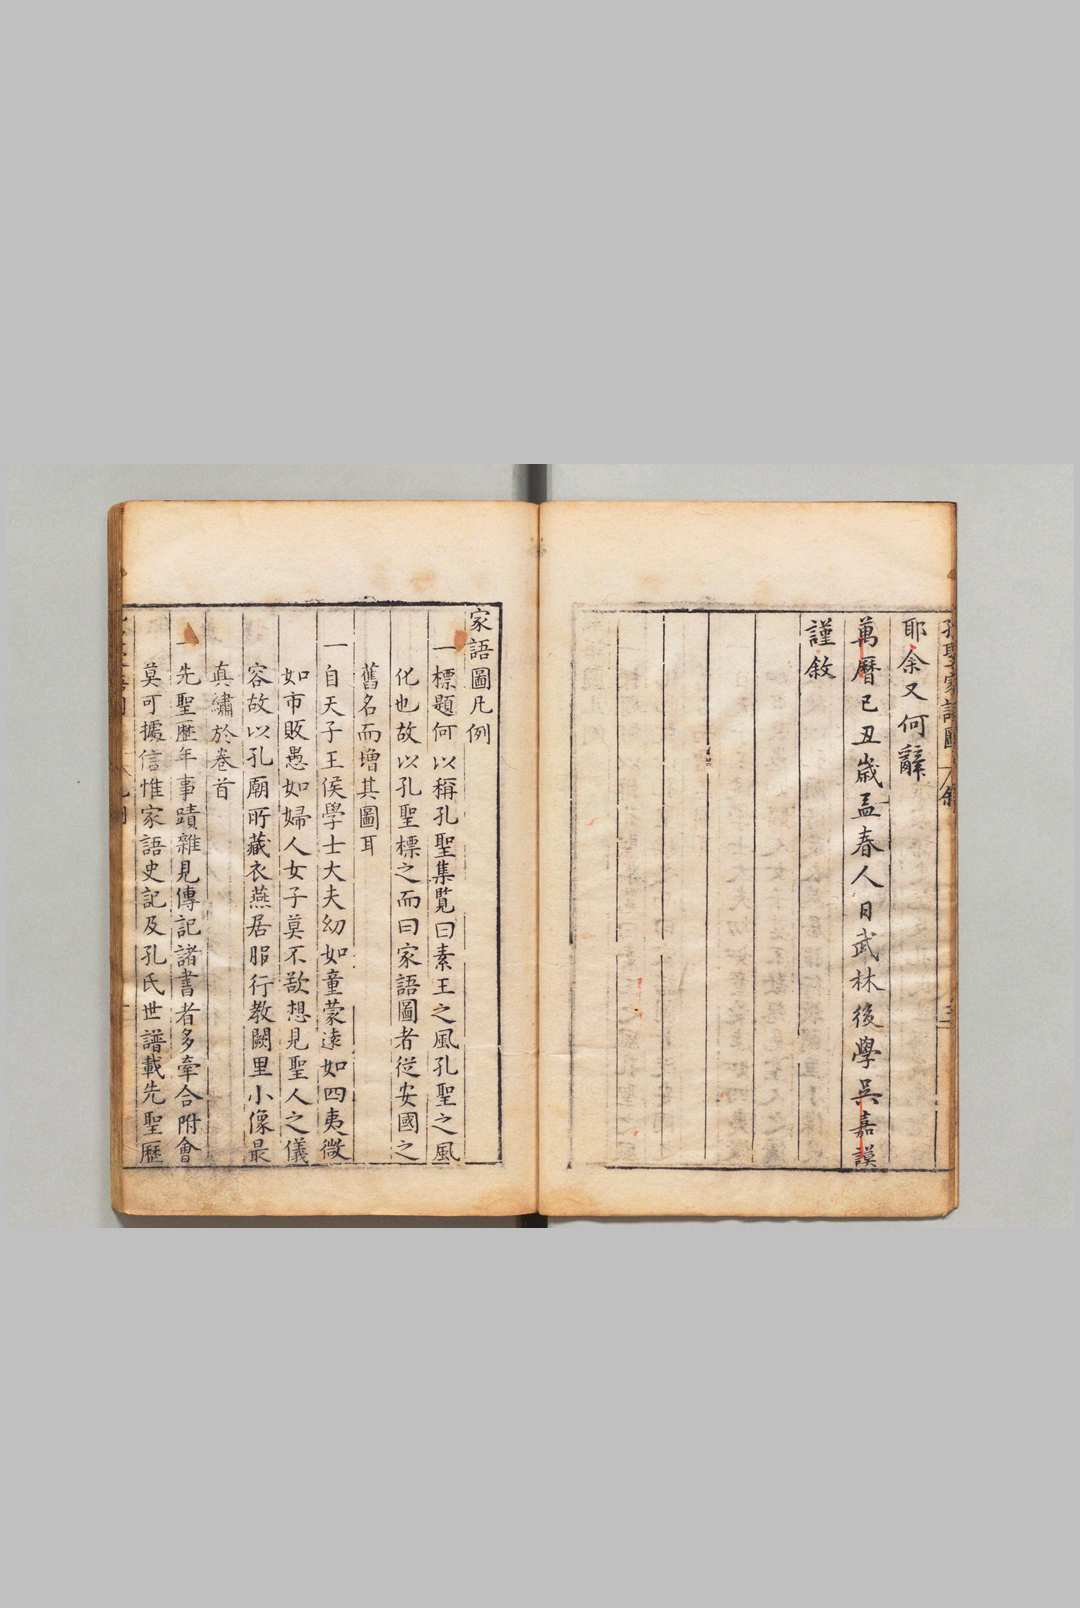 耶余又何辭
萬曆己丑歲孟春人日武林後學吳嘉謨
謹敘
家語圖凡例
一標題何以稱孔聖集覽曰素王之風孔聖之風
化也故以孔聖標之而曰家語圖者從安國之
舊名而增其圖耳
一自天子王侯學士大夫幼如童蒙遠如四夷微
如市販愚如婦人女子莫不歆想見聖人之儀
容故以孔廟所藏衣燕居服行教闕里小像最
真繡於卷首
一先聖歷年事蹟雜見傳記諸書者多牽合附會
莫可據信惟家語史記及孔氏世譜載先聖歷